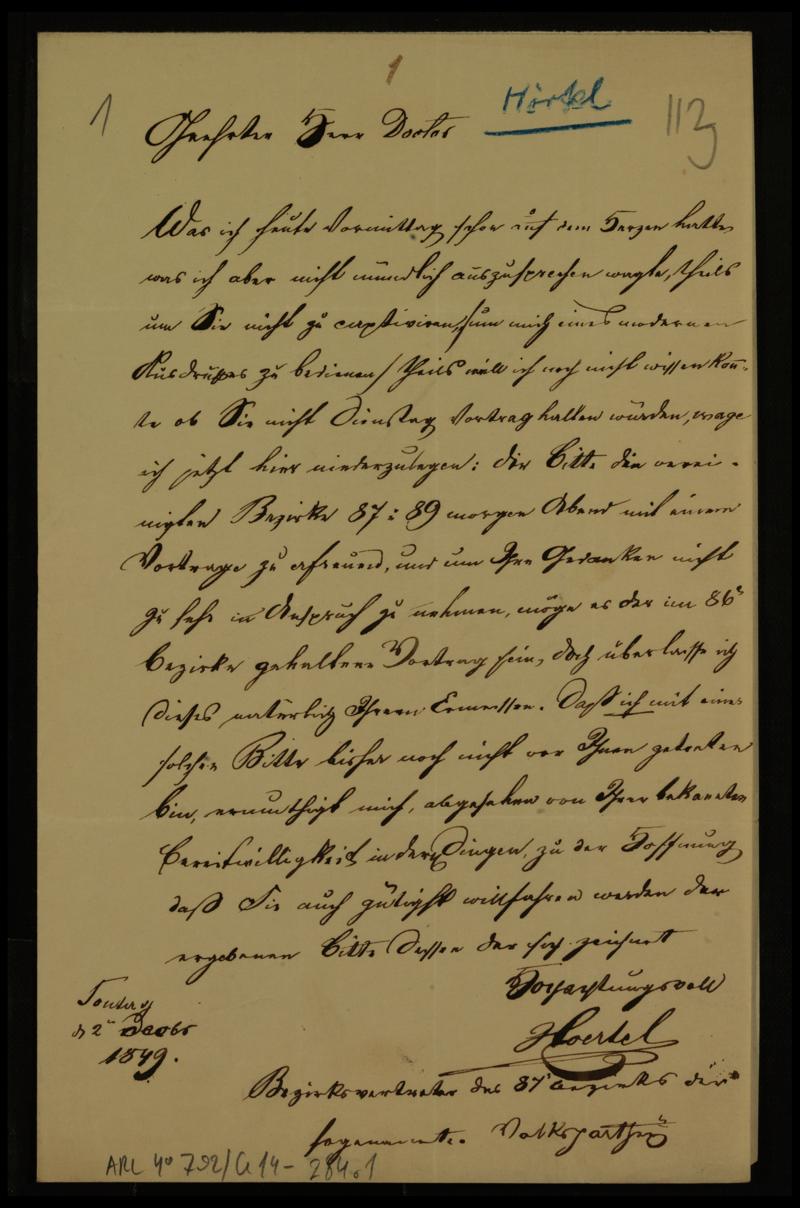 1
1 Hörtel 113
Geehrter Herr Doctor
Was ich heute Vormittag schon auf dem Herzen hatte
was ich aber nicht mündlich auszusprechen wagte, theils
um Sie nicht zu captiviren, /um mich eines modernen
Ausdruckes zu bedienen/ theils weil ich noch nicht wissen konn-
te ob Sie nicht Dienstag Vortrag halten würden, wage
ich jetzt hier niederzulegen: die Bitte die verei-
nigten Bezirke 87 : 89 morgen Abend mit einem
Vortrage zu erfreuen, und um Ihre Gedanken nicht
zu sehr in Anspruch zu nehmen, möge es der im 86
Bezirke gehaltene Vortrag sein, doch überlasse ich
dieses natürlich Ihrem Ermessen. Daß ich mit einer
solchen Bitte bisher noch nicht vor Ihnen getreten
bin, ermuthigt mich, abgesehen von Ihrer bekannten
Bereitwilligkeit in Dingen, zu der Hoffnung
daß Sie auch gütigst willfahren werden der
ergebenen Bitte dessen der sich zeichnet
Hochachtungsvoll
Sontag
d 2 Decbr
1849.
Hoertel
Bezirksvertreter des 87 Bezirks der
sogenannte. Volksparthei
ARL 4º 792/C 14- 284.1